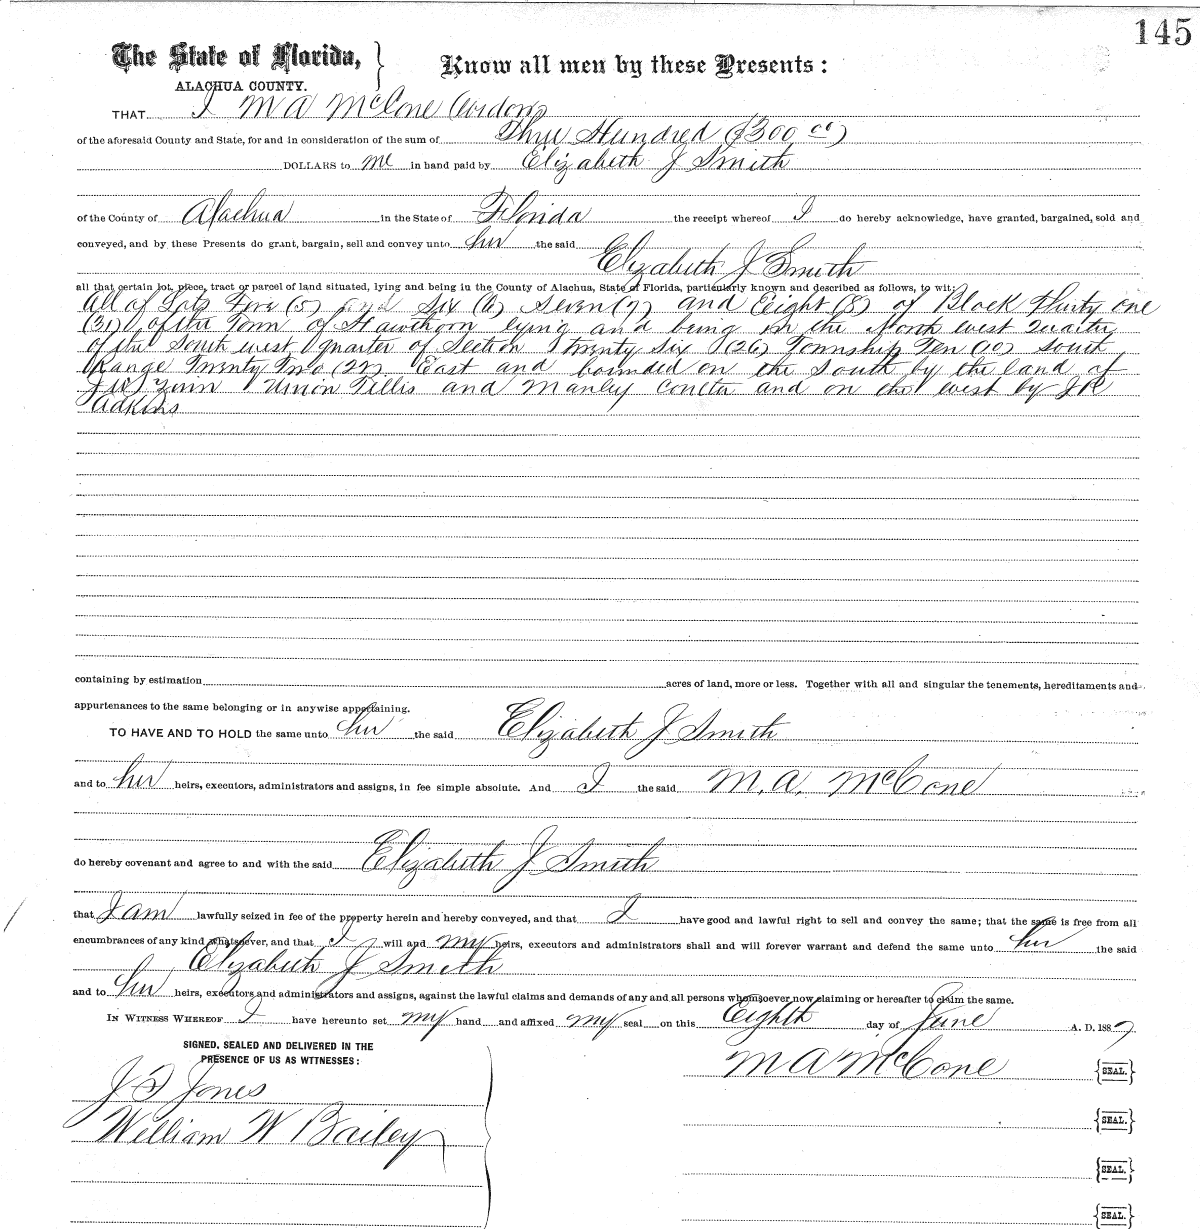 145
The State of Florida, } Know all men by these Presents:
ALACHUA COUNTY.
THAT I M A McCone (widow)
of the aforesaid County and State, for and in consideration of the sum of Three Hundred ($300 00)
DOLLARS to me in hand paid by Elizabeth J Smith
of the County of Alachua in the State of Florida the receipt whereof I do hereby acknowledge, have granted, bargained, sold and
conveyed, and by these Presents do grant, bargain, sell and convey unto her the said
Elizabeth J Smith
all that certain lot, piece, tract or parcel of land situated, lying and being in the County of Alachua, State of Florida, particularly known and described as follows, to wit:
All of Lots Five (5) and Six (6) Seven (7) and Eight (8) of Block Thirty one
(31) of the Town of Hawthorn lying and being in the North west Quarter
of the South west quarter of Section Twenty six (26) Township Ten (10) South
Range Twenty Two (22) East and bounded on the South by the land of
J W Union Tillis and Manley and on the west by J R
Adkins
containing by estimation acres of land, more or less. Together with all and singular the tenements, hereditaments and
appurtenances to the same belonging or in anywise appertaining.
TO HAVE AND TO HOLD the same unto her the said Elizabeth J Smith
and to her heirs, executors, administrators and assigns, in fee simple absolute. And I the said M. A. McCone
do hereby covenant and agree to and with the said Elizabeth J Smith
that I am lawfully seized in fee of the property herein and hereby conveyed, and that I have good and lawful right to sell and convey the same; that the same is free from all
encumbrances of any kind whatsoever, and that I will and my heirs, executors and administrators shall and will forever warrant and defend the same unto her the said
Elizabeth J Smith
and to her heirs, executors and administrators and assigns, against the lawful claims and demands of any and all persons whomsoever now claiming or hereafter to claim the same.
IN WITNESS WHEREOF I have hereunto set my hand and affixed my seal on this Eighth day of June A. D. 1887
SIGNED, SEALED AND DELIVERED IN THE
PRESENCE OF US AS WITNESSES:
M A McCone {SEAL.}
J F Jones
{SEAL.}
William W Bailey
{SEAL.}
{SEAL.}